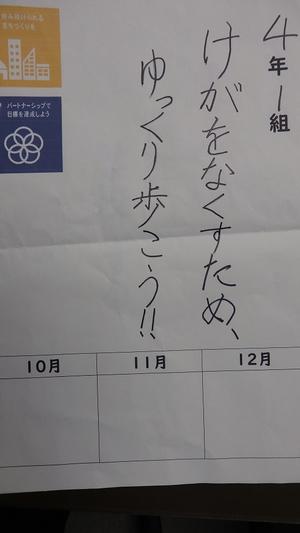 4年1組
けがをなくすため、
ゆっくり歩こう!!
住み続けられる
まちづくりを
パートナーシップで
目標を達成しよう
10月
11月
12月